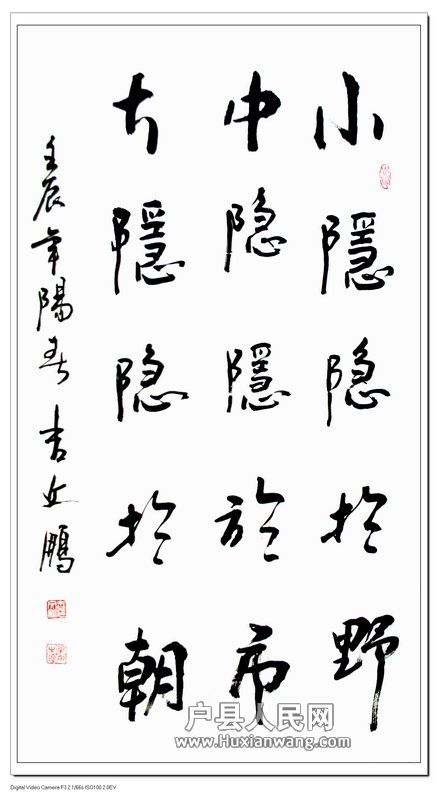 小隱隐於野
中隐隱於市
大隱隐於朝
壬辰年陽春 吉丘鵬
户县人民网
www.Huxianwang.com
Digital Video Camera F3.2 1/66s ISO100 2.0EV